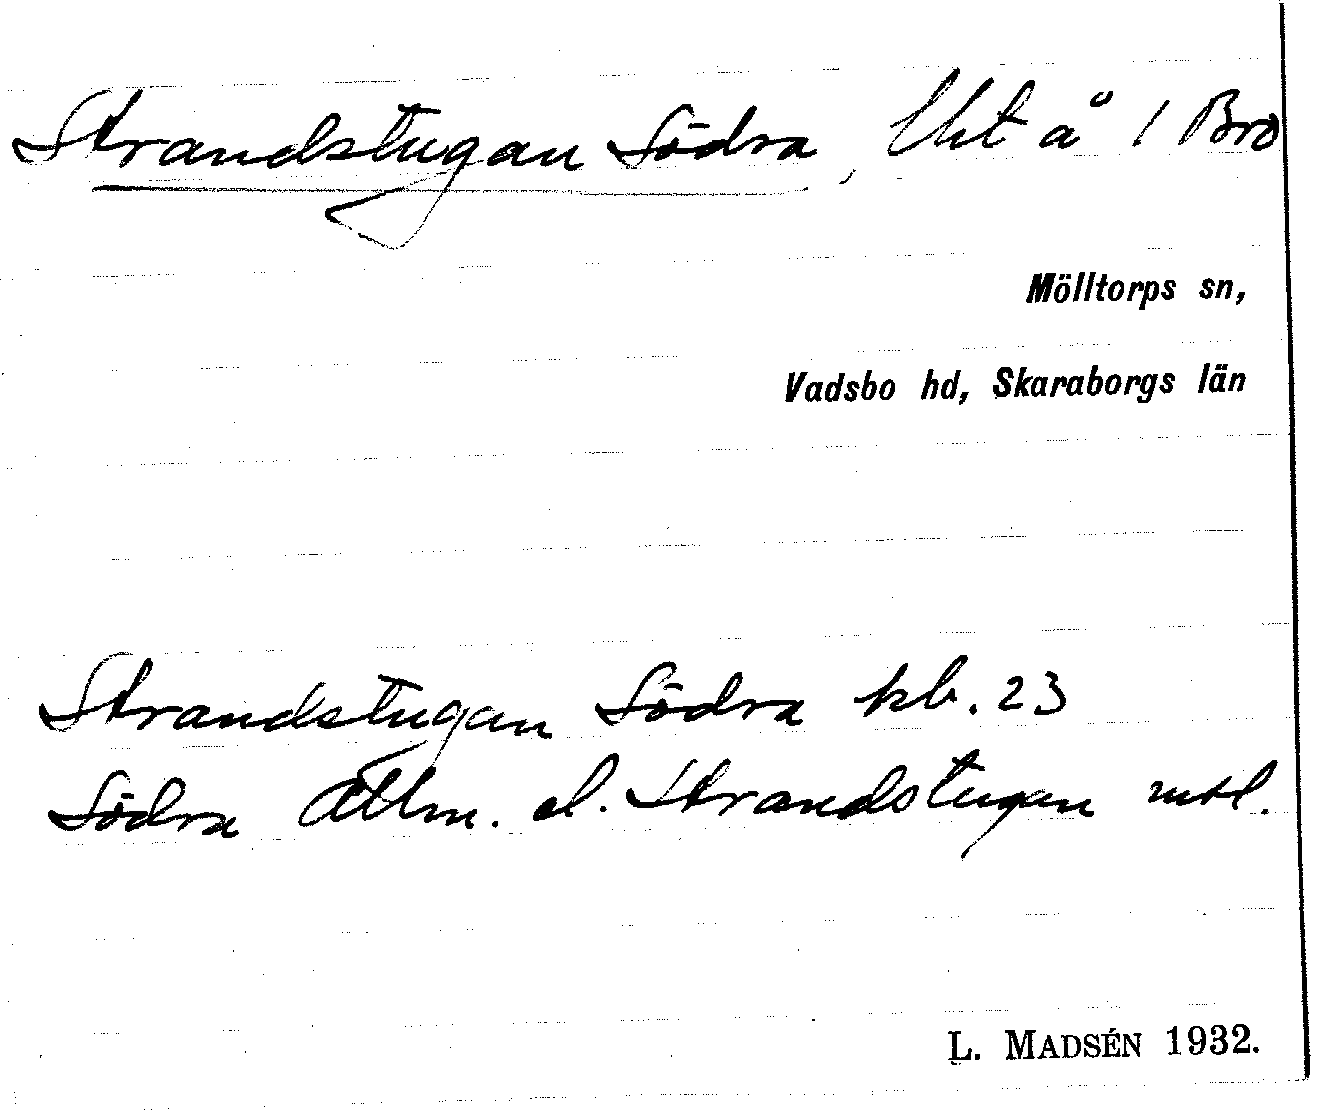 Strandstugan Södra, lht å 1 Bro
Mölltorps sn,
Vadsbo hd, Skaraborgs län
Strandstugan Södra kb. 23
Södra Allm. el. Strandstugan mtl.
L. MADSÉN 1932.